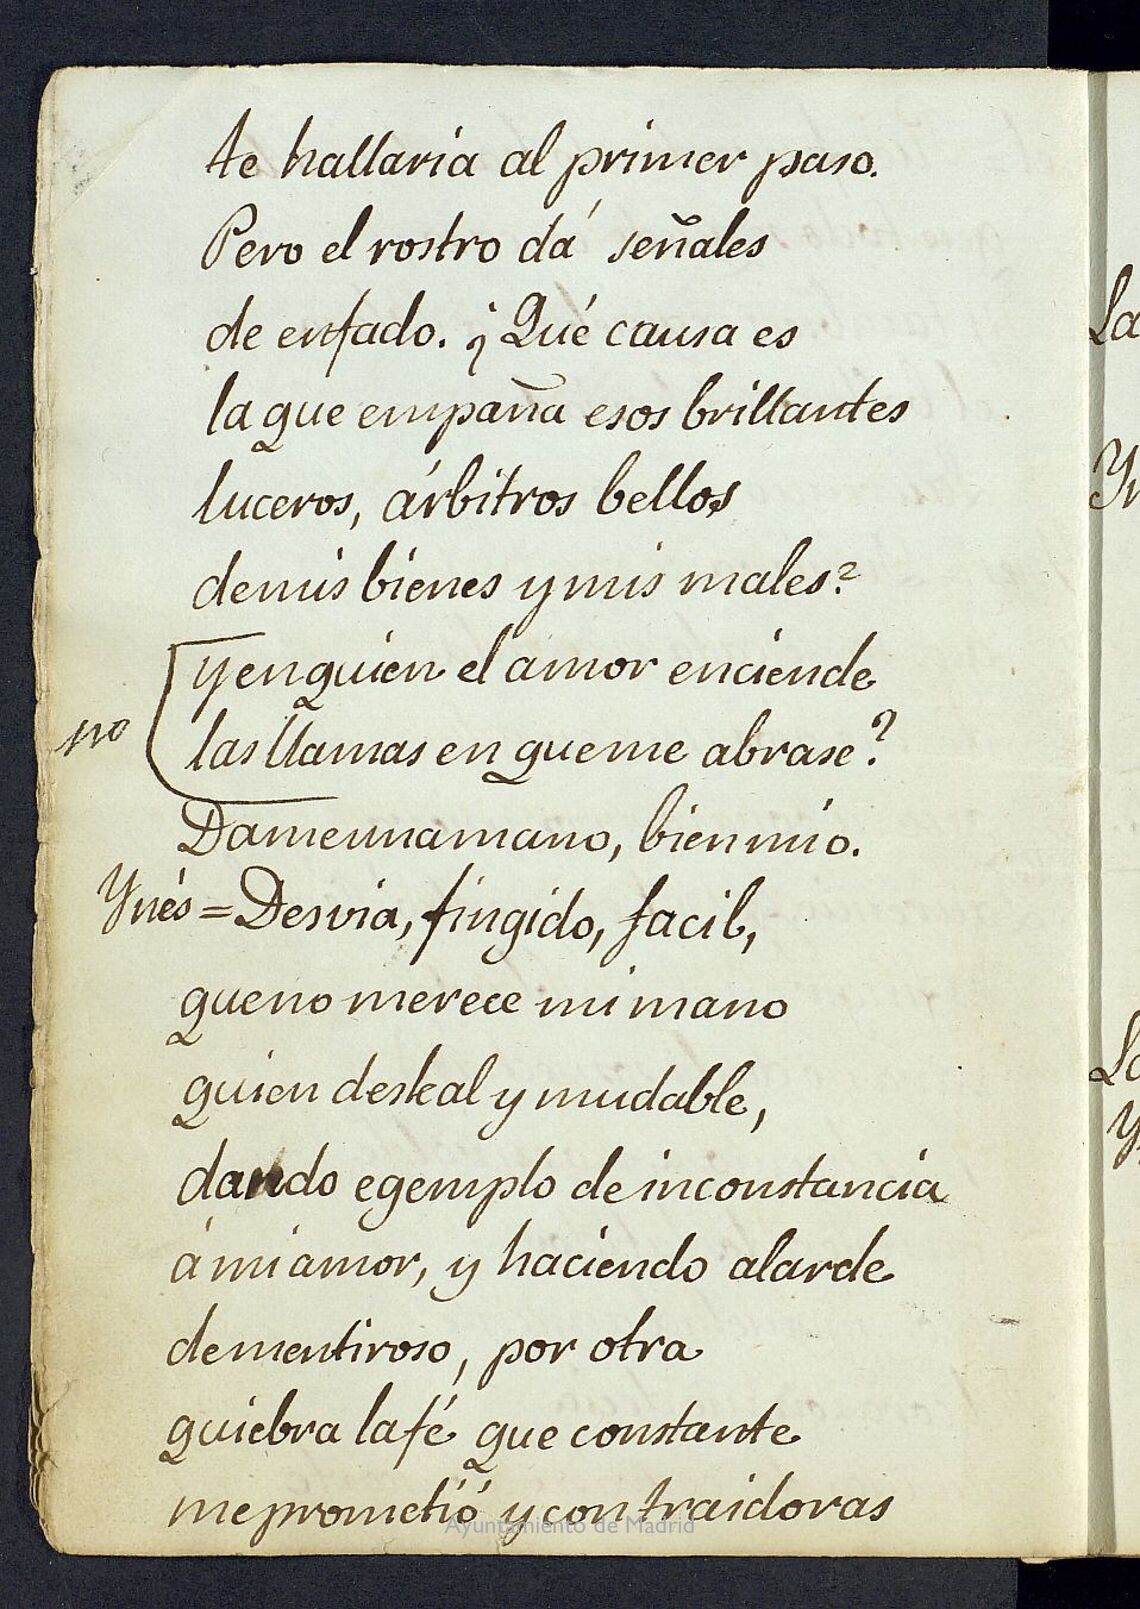 te hallaria al primer paso.
Pero el rostro dá señales
de enfado. ¿Qué causa es
la que empaña esos brillantes
luceros, árbitros bellos
de mis bienes y mis males?
y en quien el amor enciende
no
las llamas en que me abrase?
Dame una mano, bien mio.
Ynés = Desvia, fingido, facil,
que no merece mi mano
quien desleal y mudable,
dando egemplo de inconstancia
á mi amor, y haciendo alarde
de mentiroso, por otra
quiebra la fé que constante
me prometió y con traidoras
Ayuntamiento de Madrid
La
Yn
La
Y